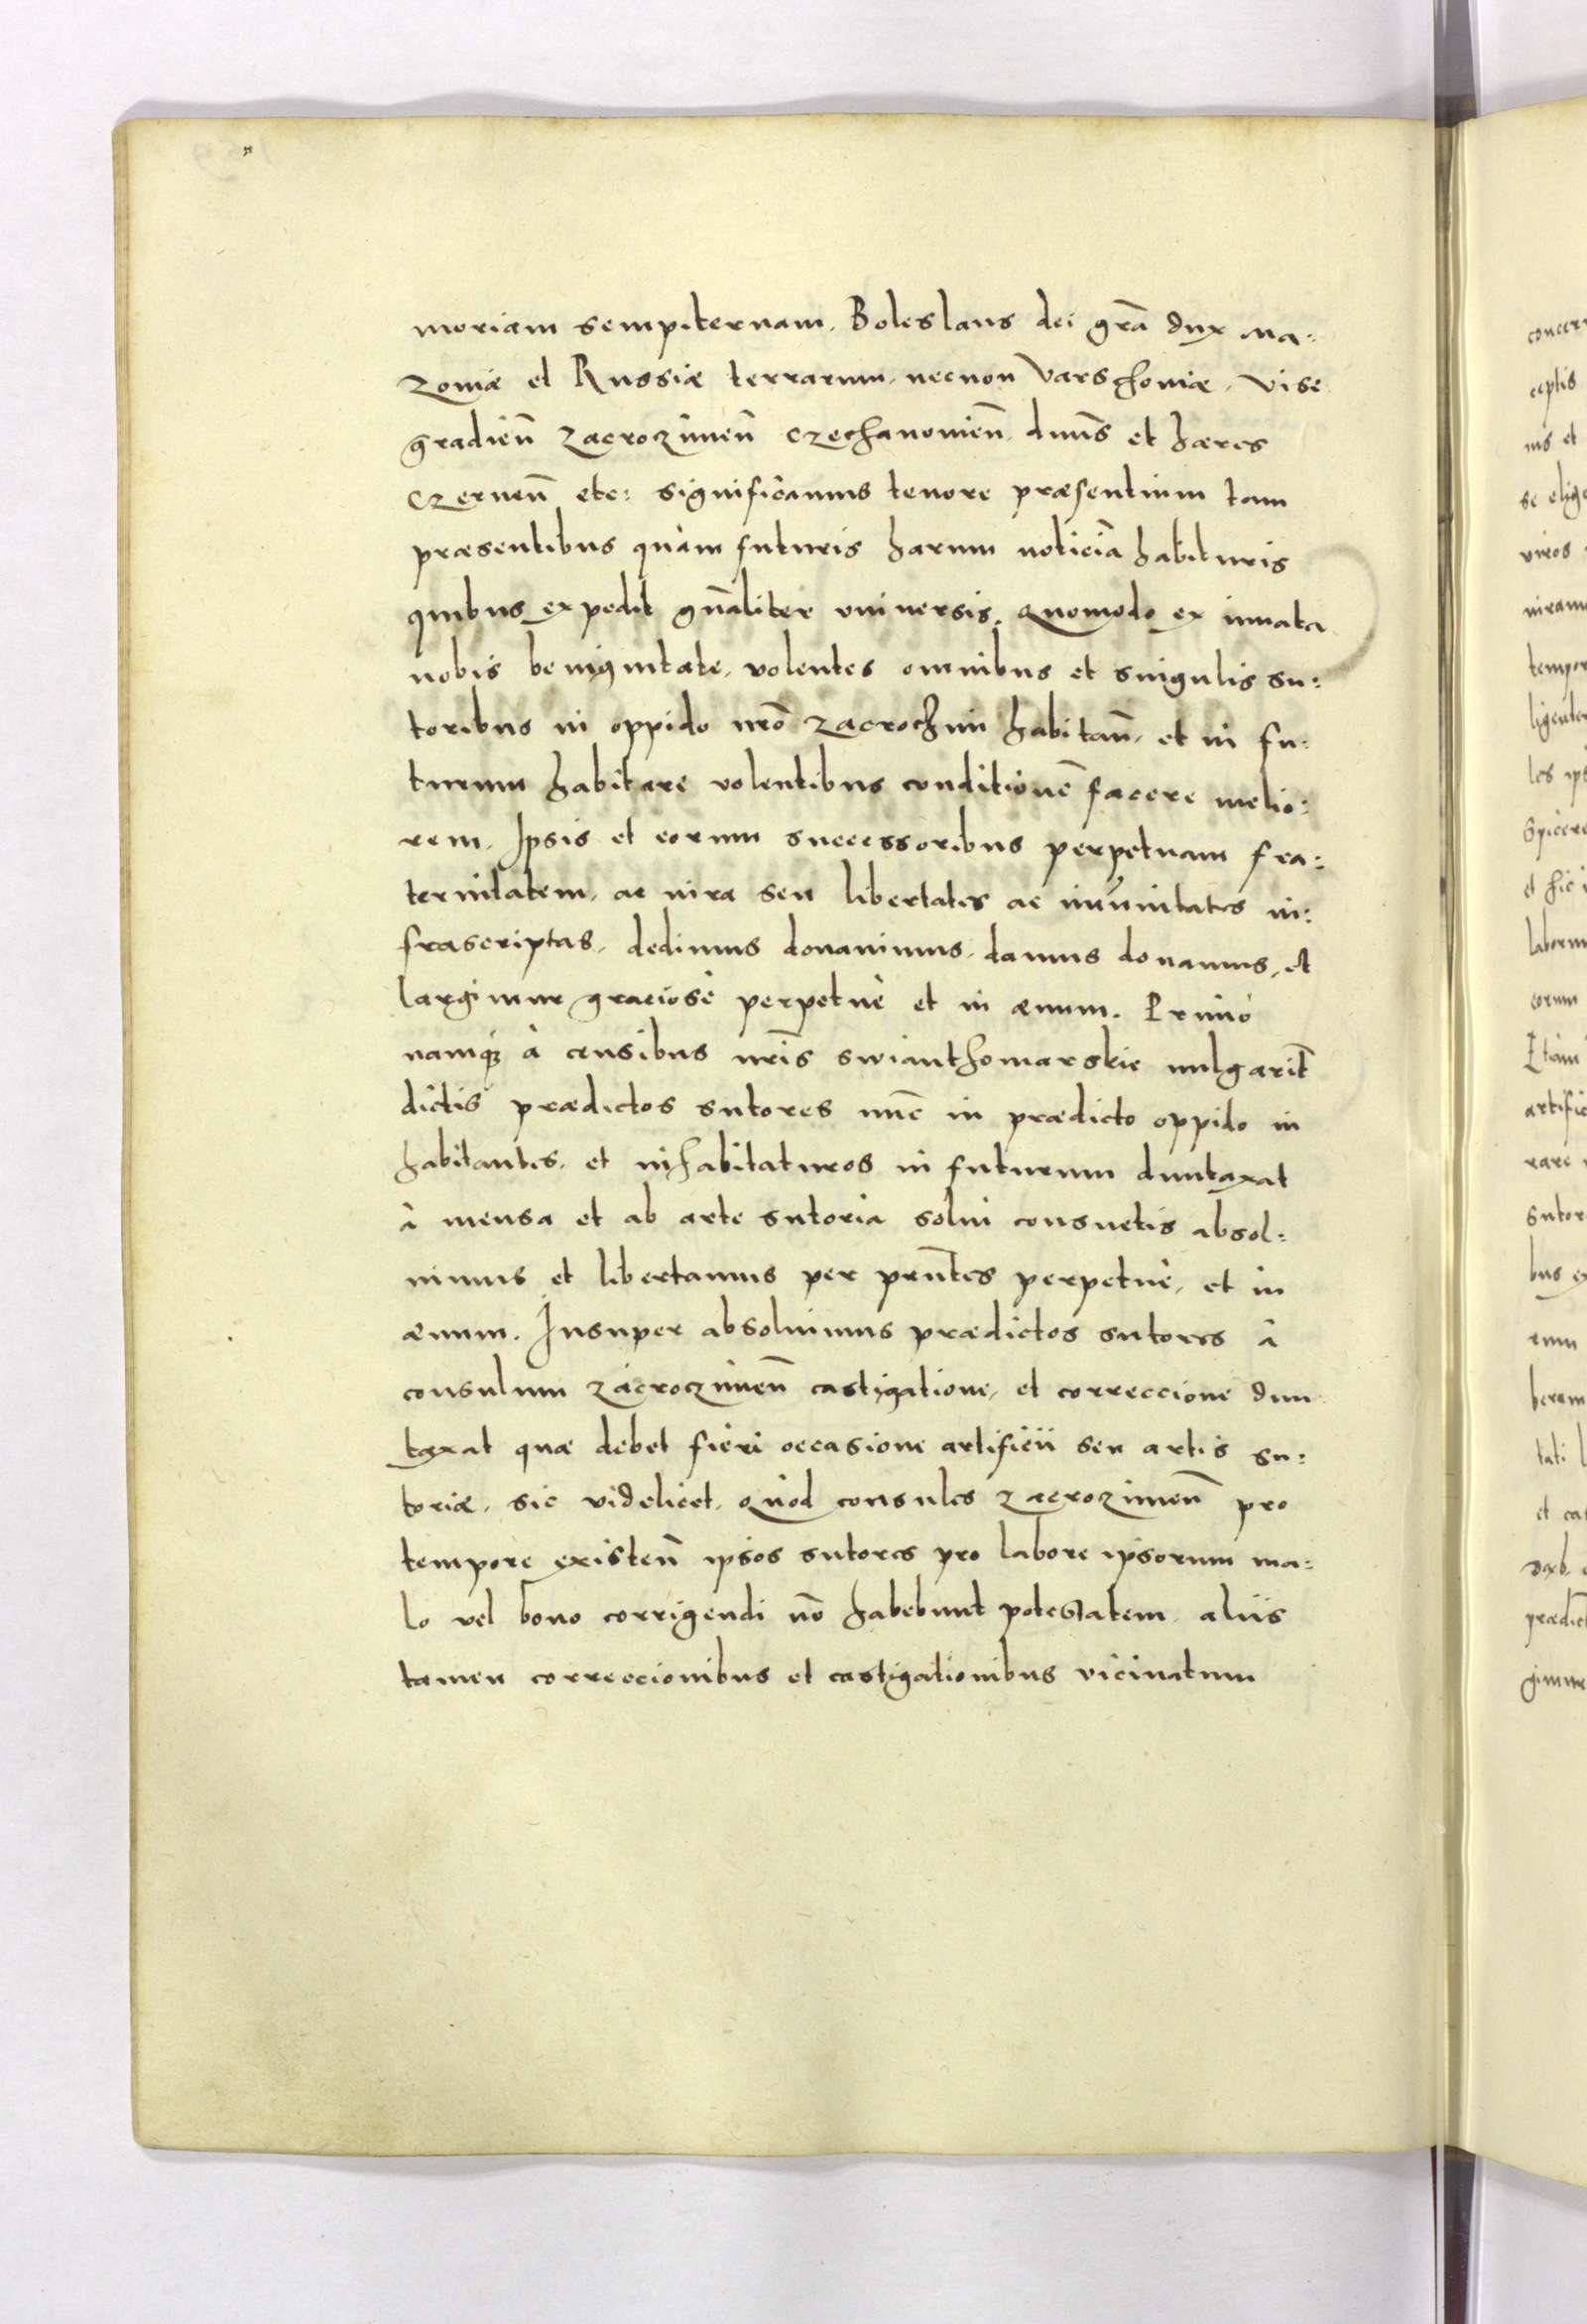 moriam sempiternam. Boleslaus dei grã dux Ma:
zoniæ et Russiæ terrarum, necnon Varschoniæ, Vise
gradieñ zacrozimeñ czechanouieñ, dnũs et hæres
czerneñ etc: significamus tenore præsentium tam
præsentibus quàm futuris harum noticiã habituris
quibus expedit gñaliter vniuersis. Quomodo ex innata
nobis benignitate, volentes omnibus et singulis su:
toribus in oppido nrõ zacrochim habitañ, et in fu:
turum habitare volentibus conditionẽ facere melio:
rem. Ipsis et eorum successoribus perpetuam fra:
ternitatem, ac iura seu libertates ac immunitates in:
frascriptas, dedimus donauimus, damus donamus, et
largimur graciosè perpetuè et in æuum. Primò
namq; à censibus nrĩs swianthomarskie uulgarit̃
dictis prædictos sutores nũc in prædicto oppido in
habitantes, et inhabitaturos in futurum duntaxat
à mensa et ab arte sutoria solui consuetis absol:
uimus et libertamus per prñtes perpetuè, et in
æuum. Insuper absoluimus prædictos sutores à
consulum zacrozimeñ castigatione, et correccione dun
taxat quæ debet fieri occasione artificii seu artis su:
toriæ, sic videlicet, quòd consules zacrozimeñ pro
tempore existeñ ipsos sutores pro labore ipsorum ma:
lo vel bono corrigendi nõ habebunt potestatem, aliis
tamen correccionibus et castigationibus vicinatum